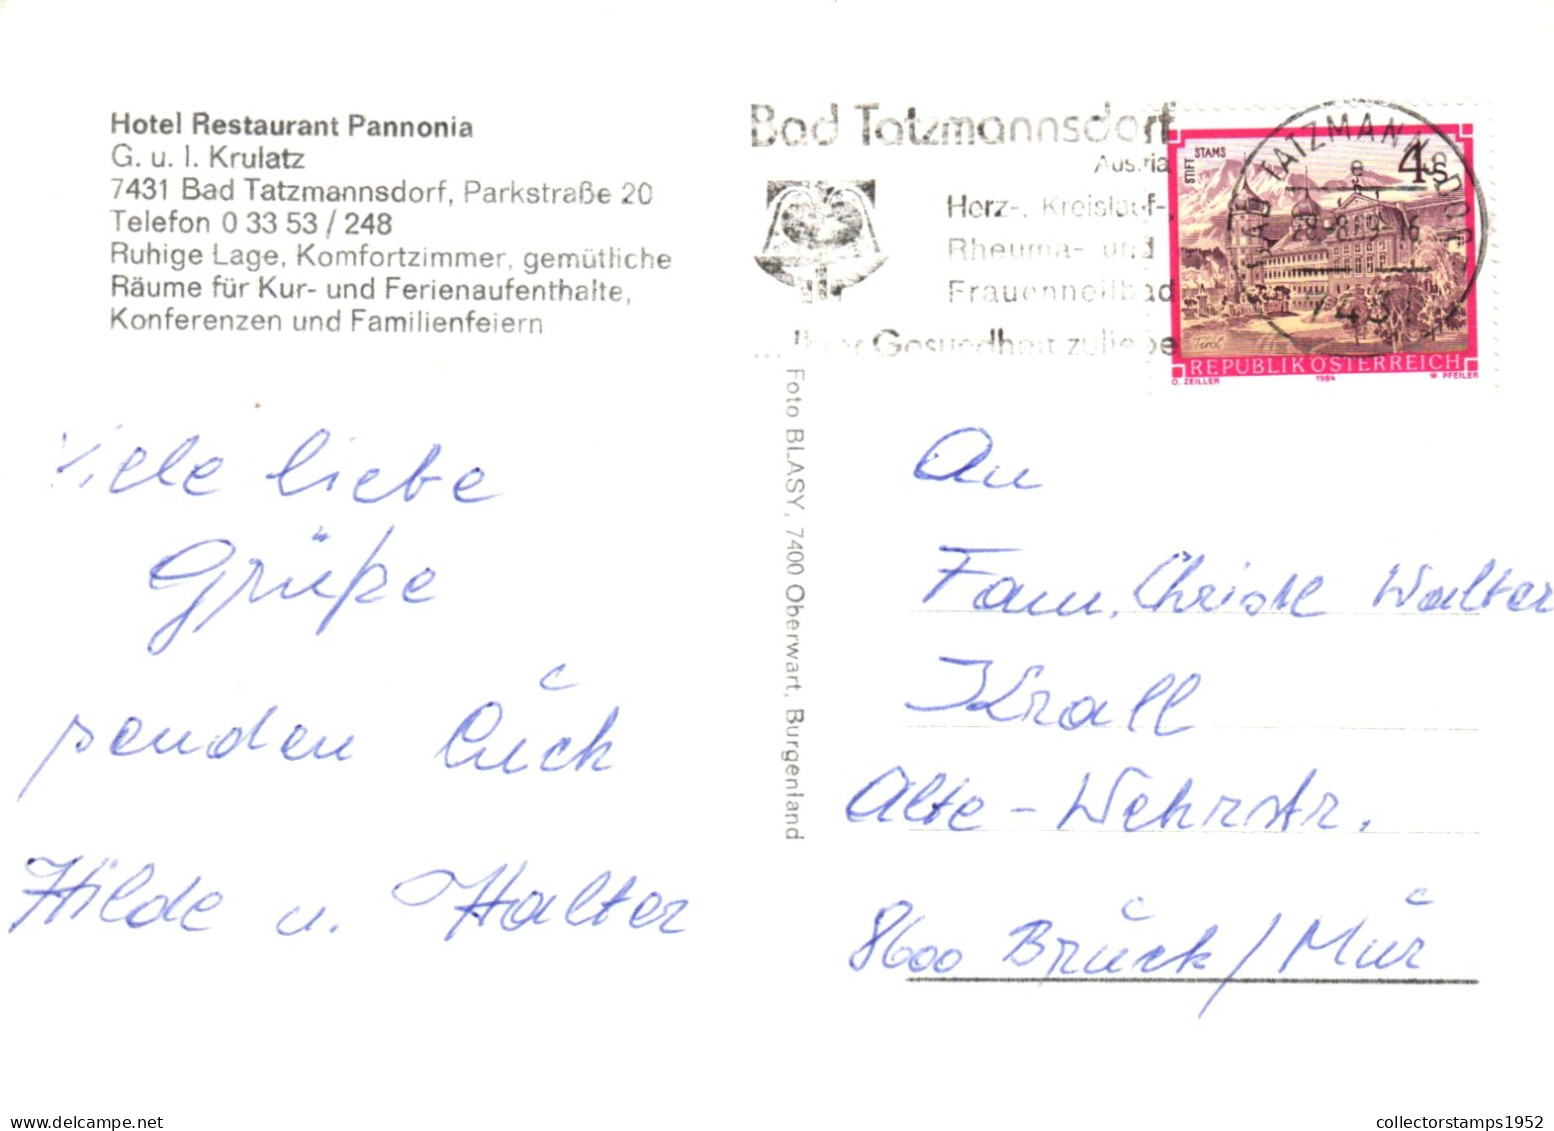 Hotel Restaurant Pannonia
G. u. I. Krulatz
7431 Bad Tatzmannsdorf, Parkstraße 20
Telefon 0 33 53 / 248
Ruhige Lage, Komfortzimmer, gemütliche
Räume für Kur- und Ferienaufenthalte,
Konferenzen und Familienfeiern
Bad Tatzmannsdorf
Austria
Herz-, Kreislauf-,
Rheuma- und
Frauenheilbad
... Ihrer Gesundheit zuliebe
BAD TATZMANNSDORF
7431
STIFT STAMS
4S
Tirol
REPUBLIK ÖSTERREICH
O. ZEILLER 1984 W. PFEILER
Viele liebe
Grüße
senden Euch
Hilde u. Walter
Foto BLASY, 7400 Oberwart, Burgenland
An
Fam. Christl Walter
Krall
Alte-Wehrstr.
8600 Bruck/Mur
collectorstamps1952